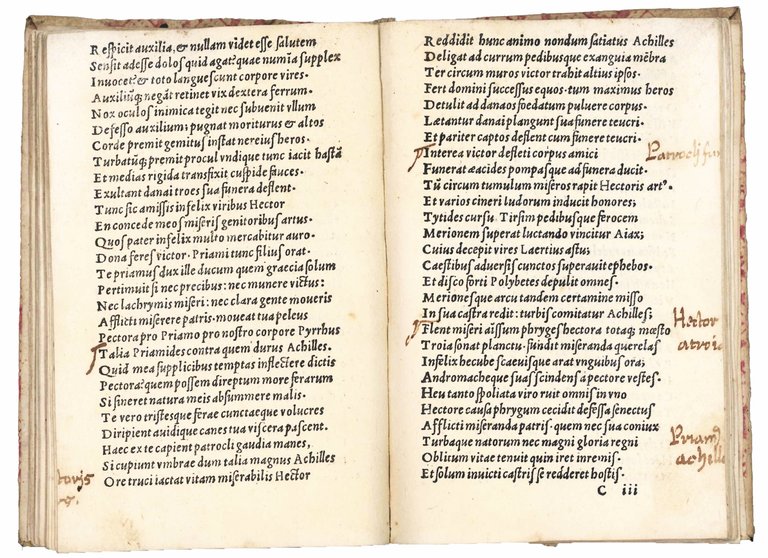 Respicit auxilia, & nullam videt esse salutem
Sensit adesse dolos quid agat? quae numĩa supplex
Inuocet? & toto languescunt corpore vires.
Auxiliũq; negãt retinet vix dextera ferrum.
Nox oculos inimica tegit nec subuenit vllum
Defesso auxilium: pugnat moriturus & altos
Corde premit gemitus instat nereius heros.
Turbatũq; premit procul vndique tunc iacit hastã
Et medias rigida transfixit cuspide fauces.
Exultant danai troes sua funera deflent.
Tunc sic amissis infelix viribus Hector
En concede meos miseris genitoribus artus.
Quos pater infelix multo mercabitur auro.
Dona feres victor. Priami tunc filius orat.
Te priamus dux ille ducum quem graecia solum
Pertimuit si nec precibus: nec munere victus:
Nec lachrymis miseri: nec clara gente moueris
Afflicti miserere patris. moueat tua peleus
Pectora pro Priamo pro nostro corpore Pyrrhus
Talia Priamides contra quem durus Achilles.
Quid mea supplicibus temptas inflectere dictis
Pectora? quem possem direptum more ferarum
Si sineret natura meis absummere malis.
Te vero tristesque ferae cunctaeque volucres
Diripient auidique canes tua viscera pascent.
Haec ex te capient patrocli gaudia manes,
Si cupiunt vmbrae dum talia magnus Achilles
Ore truci iactat vitam miserabilis Hector
Reddidit hunc animo nondum satiatus Achilles
Deligat ad currum pedibusque exanguia mẽbra
Ter circum muros victor trahit altius ipsos.
Fert domini successus equos. tum maximus heros
Detulit ad danaos foedatum puluere corpus.
Lætantur danai plangunt sua funere teucri.
Et pariter captos deflent cum funere teucri.
Interea victor defleti corpus amici
Funerat æacides pompasque ad funera ducit.
Tũ circum tumulum miseros rapit Hectoris artꝰ.
Et varios cineri ludorum inducit honores;
Tytides cursu. Tirsim pedibusque ferocem
Merionem superat luctando vincitur Aiax;
Cuius decepit vires Laertius astu;
Caestibus aduersis cunctos superauit ephebos.
Et disco forti Polybetes depulit omnes.
Merionesque arcu tandem certamine misso
In sua castra redit: turbis comitatur Achilles;
Flent miseri aissum phryges hectora totaq; mœsto
Troia sonat planctu. fundit miseranda querelas
Infelix hecube scaeuisque arat vnguibus ora;
Andromacheque suas scindens a pectore vestes.
Heu tanto spoliata viro ruit omnis in vno
Hectore causa phrygum cecidit defessa senectus
Afflicti miseranda patris. quem nec sua coniux
Turbaque natorum nec magni gloria regni
Oblitum vitae tenuit quin iret inremis.
Et solum inuicti castris se redderet hostis.
C iii
Patroclj fun
Hector
a troia
Priam
achille